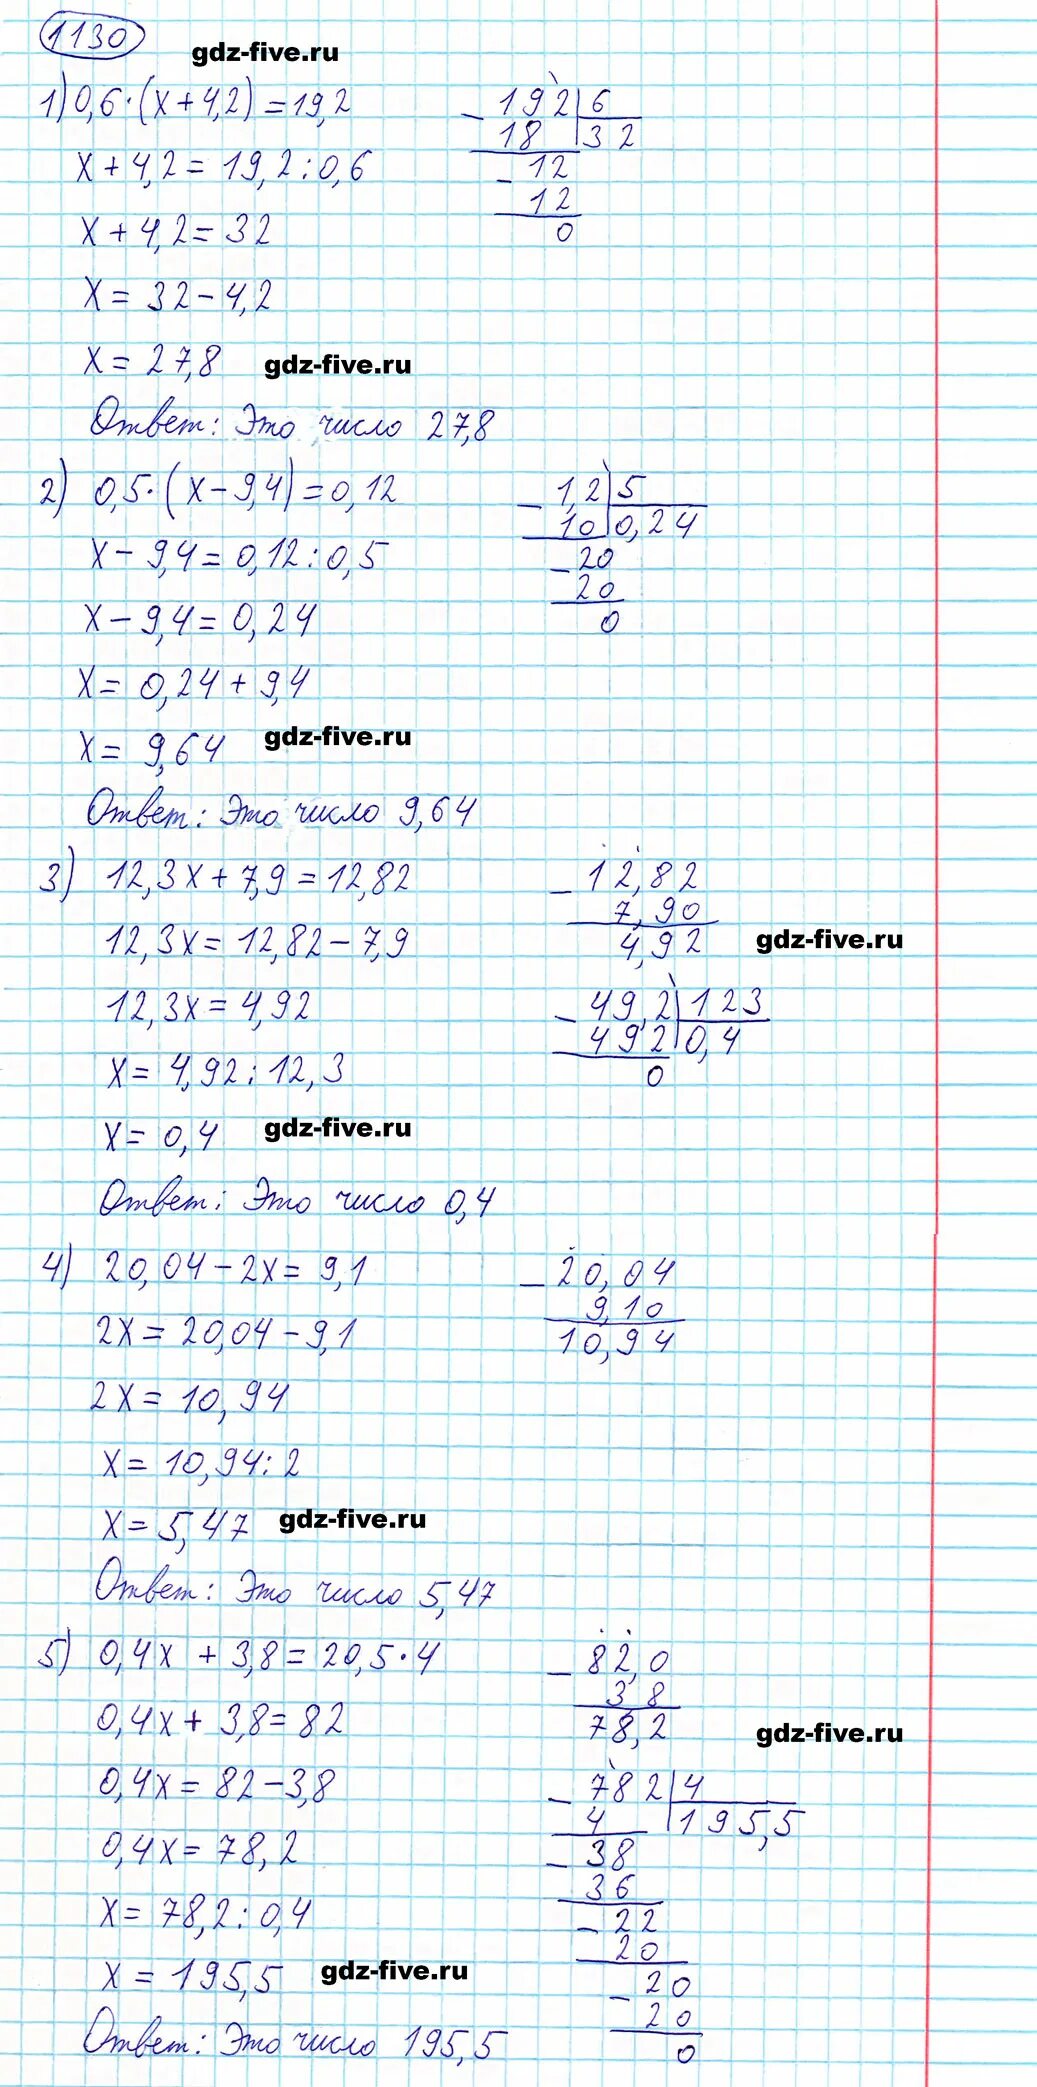 1130
gdz-five.ru
1) 0,6·(x+4,2)=19,2
x+4,2=19,2:0,6
x+4,2=32
x=32-4,2
x=27,8
gdz-five.ru
Ответ: Это число 27,8
- 192 | 6
18 | 32
- 12
12
0
2) 0,5·(x-9,4)=0,12
x-9,4=0,12:0,5
x-9,4=0,24
x=0,24+9,4
x=9,64
gdz-five.ru
Ответ: Это число 9,64
- 1,2 | 5
10 | 0,24
- 20
20
0
3) 12,3x+7,9=12,82
12,3x=12,82-7,9
12,3x=4,92
x=4,92:12,3
x=0,4
gdz-five.ru
Ответ: Это число 0,4
- 12,82
7,90
4,92
gdz-five.ru
- 49,2 | 123
492 | 0,4
0
4) 20,04-2x=9,1
2x=20,04-9,1
2x=10,94
x=10,94:2
x=5,47
gdz-five.ru
Ответ: Это число 5,47
- 20,04
9,10
10,94
5) 0,4x+3,8=20,5·4
0,4x+3,8=82
0,4x=82-3,8
0,4x=78,2
x=78,2:0,4
x=195,5
gdz-five.ru
Ответ: Это число 195,5
- 82,0
3,8
78,2
gdz-five.ru
- 782 | 4
4 | 195,5
- 38
36
- 22
20
- 20
20
0